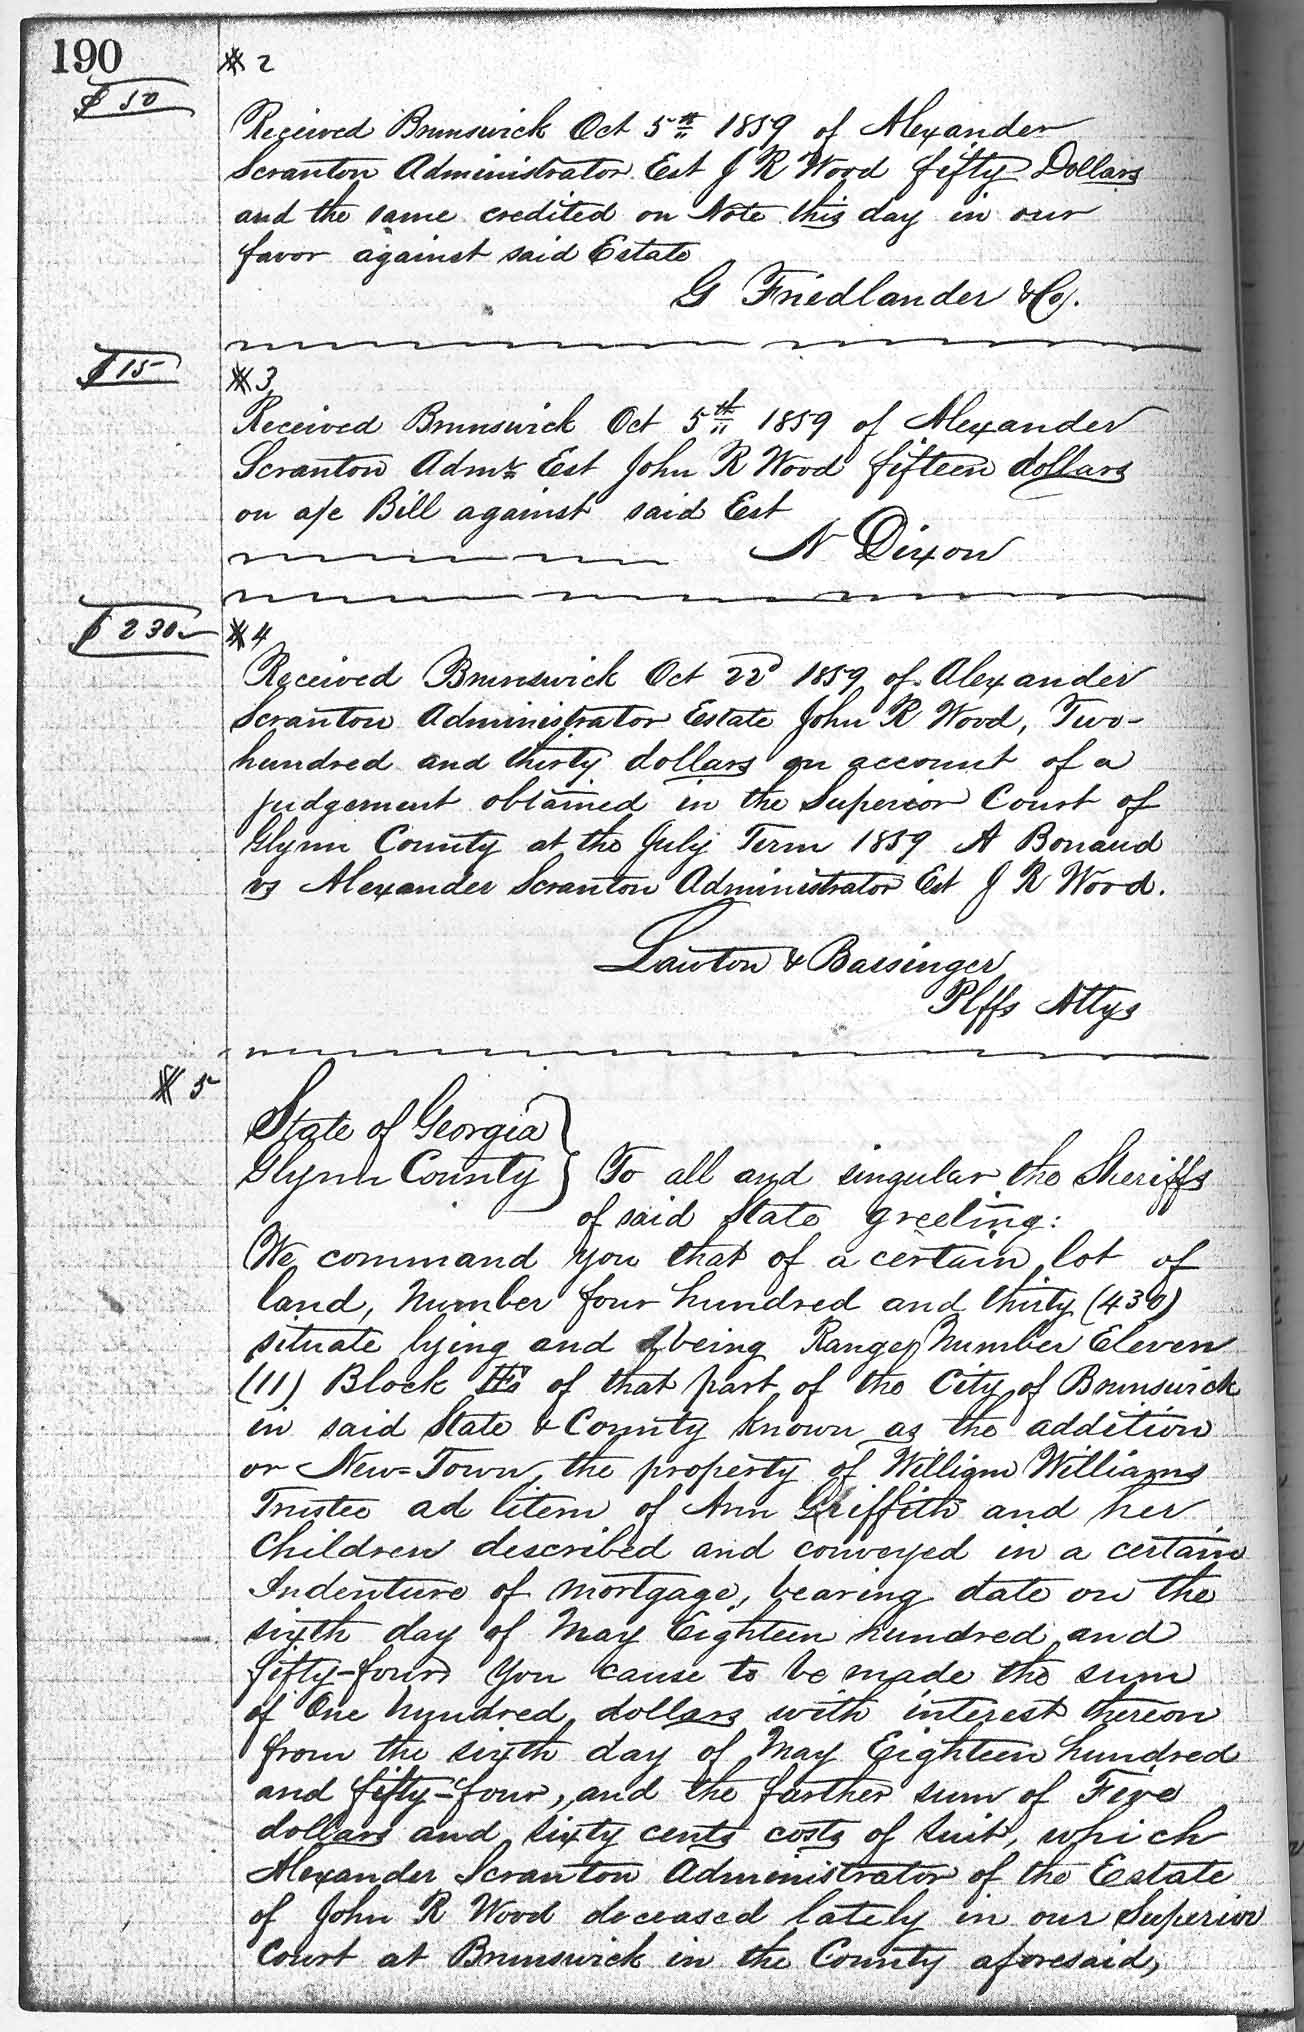 190
# 2
$ 50
Received Brunswick Oct 5th 1859 of Alexander
Scranton Administrator Est J R Wood fifty Dollars
and the same credited on Note this day in our
favor against said Estate
G Friedlander & Co.
$ 15
# 3
Received Brunswick Oct 5th 1859 of Alexander
Scranton Admr Est John R Wood fifteen dollars
on a/c Bill against said Est
N Dixon
$ 230
# 4
Received Brunswick Oct 22d 1859 of Alexander
Scranton Administrator Estate John R Wood, Two-
hundred and thirty dollars on account of a
judgement obtained in the Superior Court of
Glynn County at the July Term 1859 A Bonaud
vs Alexander Scranton Administrator Est J R Wood.
Lawton & Bassinger
Plffs Attys
# 5
State of Georgia
Glynn County } To all and singular the Sheriffs
of said State greeting:
We command you that of a certain lot of
land, Number four hundred and thirty (430)
situate lying and being Range Number Eleven
(11) Block of that part of the City of Brunswick
in said State & County known as the addition
or New=Town, the property of William Williams
Trustee ad litem of Ann Griffith and her
Children described and conveyed in a certain
Indenture of mortgage, bearing date on the
sixth day of May Eighteen hundred and
fifty-four You cause to be made the sum
of One hundred dollars with interest thereon
from the sixth day of May Eighteen hundred
and fifty-four, and the farther sum of Five
dollars and sixty cents costs of suit, which
Alexander Scranton Administrator of the Estate
of John R Wood deceased lately in our Superior
Court at Brunswick in the County aforesaid,